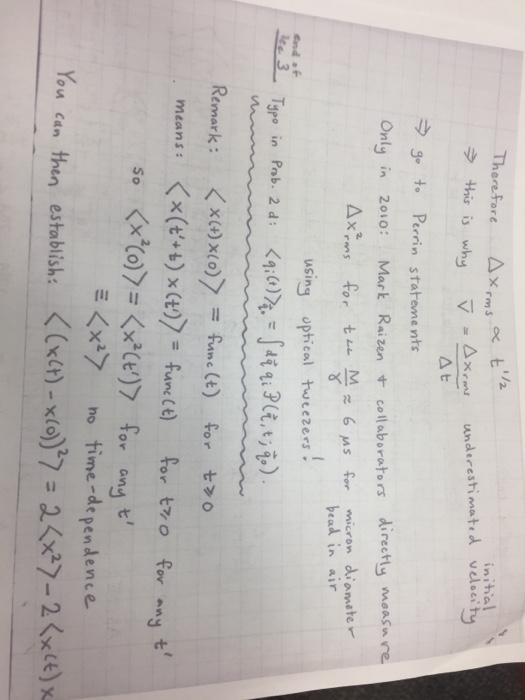 Therefore Δx_rms ∝ t^1/2
⇒ this is why V̄ = Δx_rms / Δt underestimated initial velocity
⇒ go to Perrin statements
Only in 2010: Mark Raizen + collaborators directly measure
Δx²_rms for t << M/γ ≈ 6 μs for micron diameter
bead in air
using optical tweezers!
end of
lec 3
Typo in Prob. 2d: <q_i(t)>_q⃗₀ = ∫dq⃗ q_i P(q⃗, t; q⃗₀).
Remark: <x(t)x(0)> = func(t) for t≥0
means: <x(t'+t) x(t')> = func(t) for t≥0 for any t'
so <x²(0)> = <x²(t')> for any t'
≡ <x²> no time-dependence
You can then establish: <(x(t) - x(0))²> = 2<x²> - 2<x(t) x